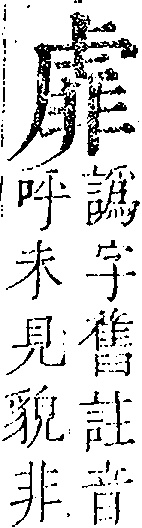 譌字舊註音
呼未見貌非